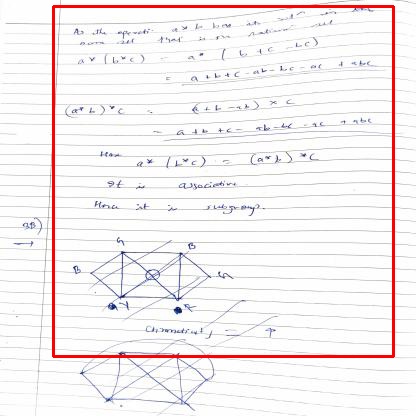 As the operation a*b has its
same set that is the
a* (b*c) = a* (b + c - bc)
= a+b+c-ab-bc-ac + abc
(a*b)*c = (a+b-ab) * c
= a+b+c- ab-bc-ac + abc
Here a* (b*c) = (a*b) *c
It is associative
Hence it is subgroup.
3B)
G B
B G
Y R
Chromatic = 4